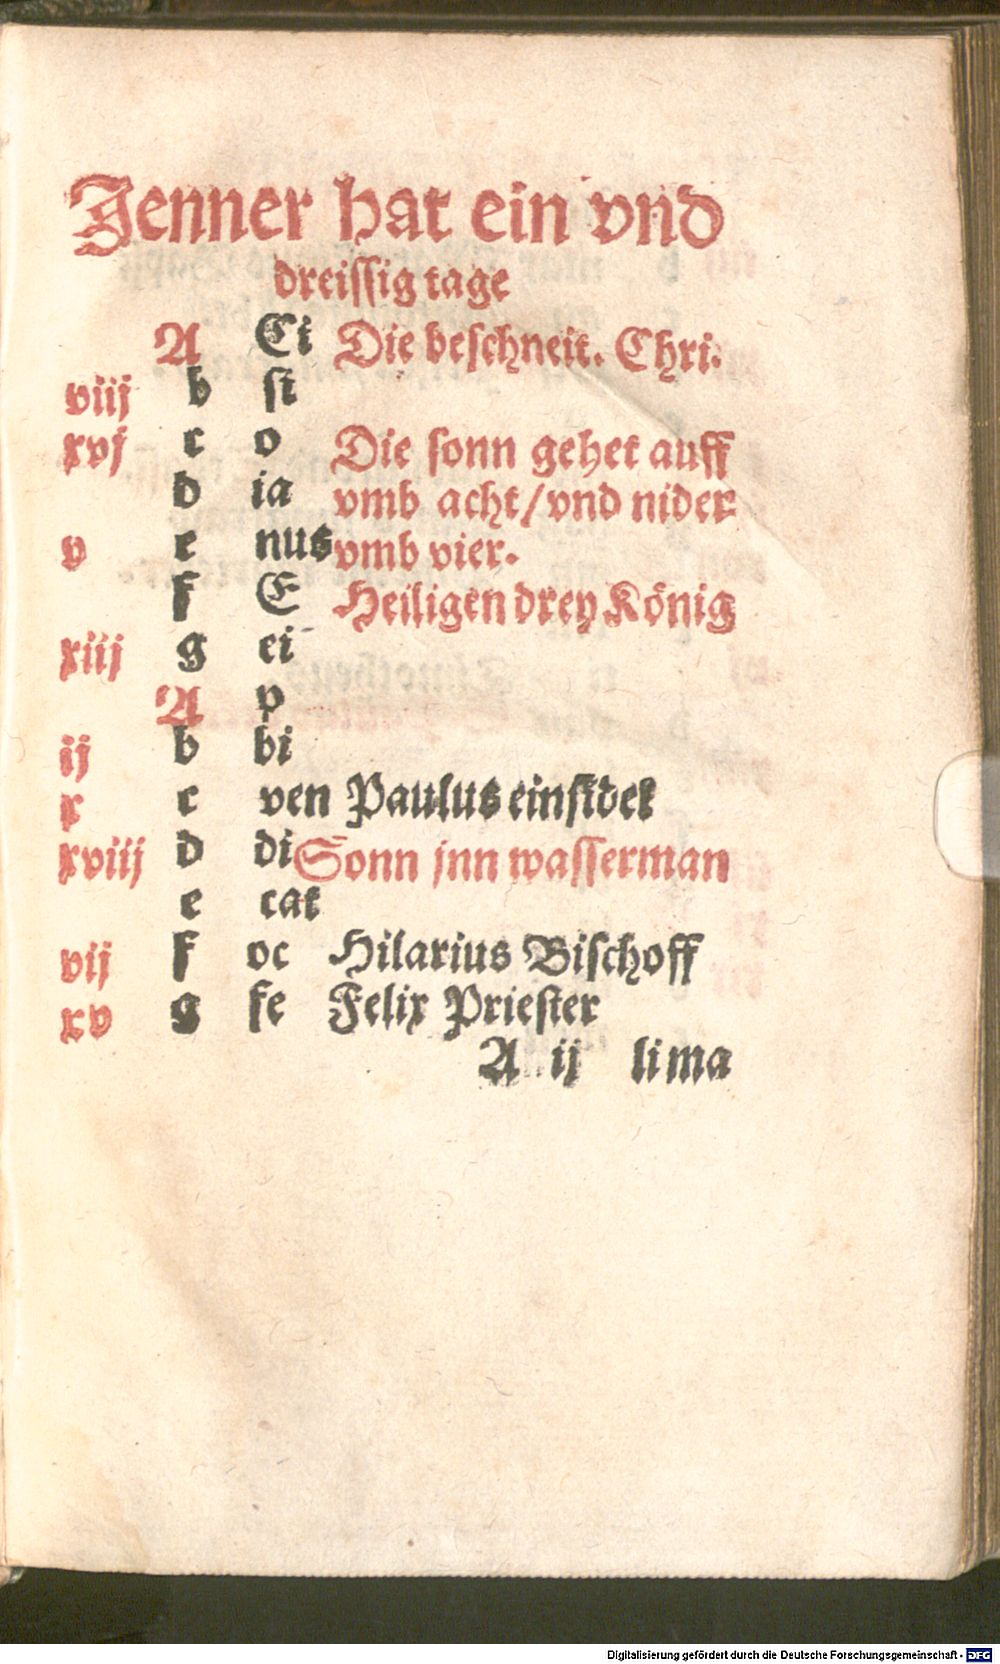 Jenner hat ein vnd
dreissig tage
A Ci Die beschneit. Chri.
viij b si
xvj c o Die sonn gehet auff
d ia vmb acht/vnd nider
v e nus vmb vier.
f E Heiligen drey König
xiij g ei
A p
ij b bi
x c ven Paulus einsidel
xviij d di Sonn jnn wasserman
e cat
vij f oc Hilarius Bischoff
xv g fe Felix Priester
A ij lima
Digitalisierung gefördert durch die Deutsche Forschungsgemeinschaft - DFG